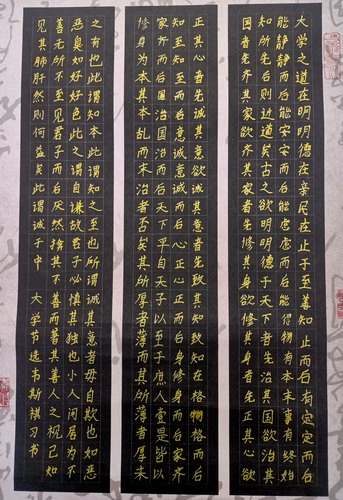 大学之道在明明德在亲民在止于至善知止而后有定定而后
能静静而后能安安而后能虑虑而后能得物有本末事有终始
知所先后则近道矣古之欲明明德于天下者先治其国欲治其
国者先齐其家欲齐其家者先修其身欲修其身者先正其心欲
正其心者先诚其意欲诚其意者先致其知致知在格物格而后
知至知至而后意诚意诚而后心正心正而后身修身修而后家齐
家齐而后国治国治而后天下平自天子以至于庶人壹是皆以
修身为本其本乱而末治者否矣其所厚者薄而其所薄者厚未
之有也此谓知本此谓知之至也所谓诚其意者毋自欺也如恶
恶臭如好好色此之谓自谦故君子必慎其独也小人闲居为不
善无所不至见君子而后厌然揜其不善而著其善人之视己如
见其肺肝然则何益矣此谓诚于中 大学节选韦斯祺习书